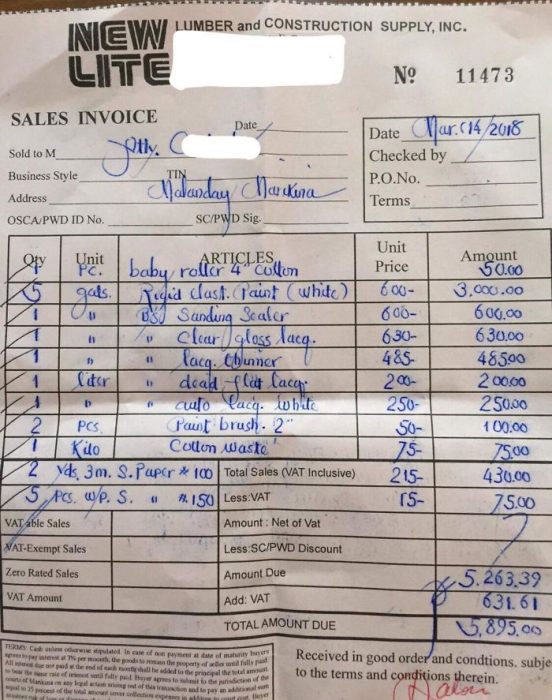 NEW LITE LUMBER and CONSTRUCTION SUPPLY, INC.
Nº 11473
SALES INVOICE
Date
Date Mar. 14/2018
Sold to M Atty. C
Checked by
Business Style TIN
P.O.No.
Address Malanday Marikina
Terms
OSCA/PWD ID No. SC/PWD Sig.
Qty Unit ARTICLES Unit Price Amount
1 Pc. baby roller 4" cotton 50.00
5 gals. Rigid Clast. Paint (White) 600- 3,000.00
1 " BSJ Sanding Sealer 600- 600.00
1 " " Clear gloss lacq. 630- 630.00
1 " " lacq. thinner 485- 485.00
1 liter " dead-flat lacq. 200- 200.00
1 " " auto lacq. white 250- 250.00
2 pcs. Paint brush. 2" 50- 100.00
1 Kilo Cotton waste 75- 75.00
2 yds. 3m. S. Paper # 100 Total Sales (VAT Inclusive) 215- 430.00
5 Pcs. w/p. S. " #.150 Less:VAT 15- 75.00
VATable Sales Amount : Net of Vat
VAT-Exempt Sales Less:SC/PWD Discount
Zero Rated Sales Amount Due 5,263.39
VAT Amount Add: VAT 631.61
TOTAL AMOUNT DUE 5,895.00
TERMS: Cash unless otherwise stipulated. In case of non payment at date of maturity buyers
agrees to pay interest at 3% per month, the goods to remain the property of seller until fully paid.
All interest due not paid at the end of each month shall be added to the principal the total amount
to bear the same rate of interest until fully paid. Buyer agrees to submit to the jurisdiction of the
courts of Marikina on any legal action arising out of this transaction and to pay an additional sum
equal to 25 percent of the total amount
Received in good order and condtions. subje
to the terms and conditions therein.